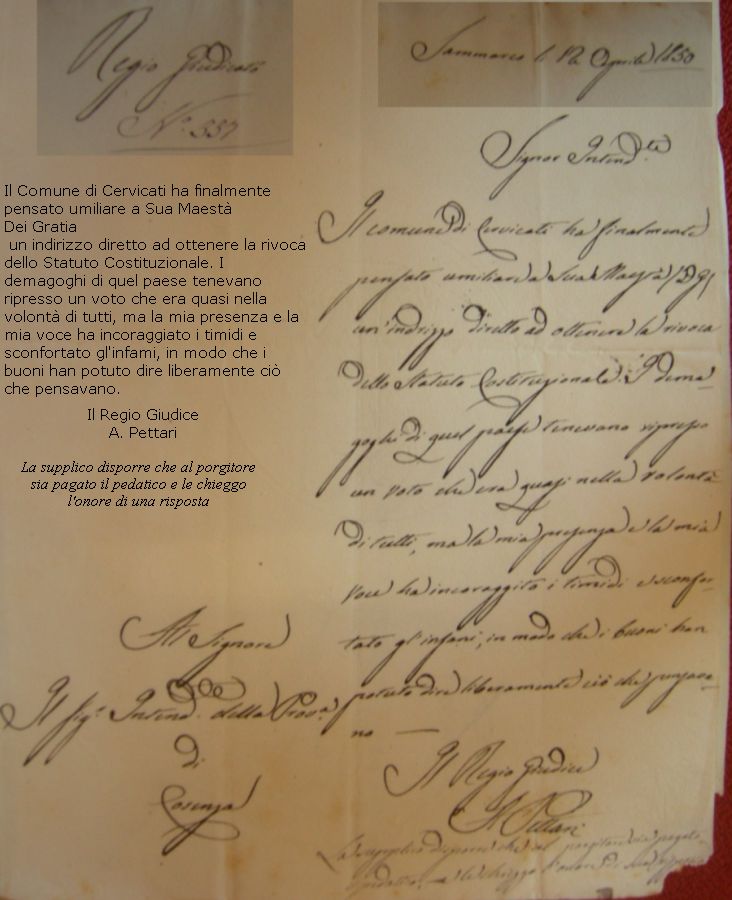 Regio Giudicato
N.º 337
Sammarco li 12 Aprile 1850
Signor Intend.te
Il Comune di Cervicati ha finalmente
pensato umiliare a Sua Maestà
Dei Gratia
un indirizzo diretto ad ottenere la rivoca
dello Statuto Costituzionale. I
demagoghi di quel paese tenevano
ripresso un voto che era quasi nella
volontà di tutti, ma la mia presenza e la
mia voce ha incoraggiato i timidi e
sconfortato gl'infami, in modo che i
buoni han potuto dire liberamente ciò
che pensavano.
Il Regio Giudice
A. Pettari
La supplico disporre che al porgitore
sia pagato il pedatico e le chieggo
l'onore di una risposta
Il comune di Cervicati ha finalmente
pensato umiliare a Sua Maestà (D. G.)
un'indrizzo diretto ad ottenere la rivoca
dello Statuto Costituzionale. I dema-
goghi di quel paese tenevano ripresso
un voto che era quasi nella volontà
di tutti, ma la mia presenza e la mia
voce ha incoraggito i timidi e sconfor-
tato gl'infami, in modo che i buoni han
potuto dire liberamente ciò che pensava-
no —
Il Regio Giudice
A. Pettari
La supplico disporre che al porgitore sia pagato
il pedatico, e le chieggo l'onore di una risposta
Al Signore
Il Sig.r Intend.te della Prov.a
di
Cosenza